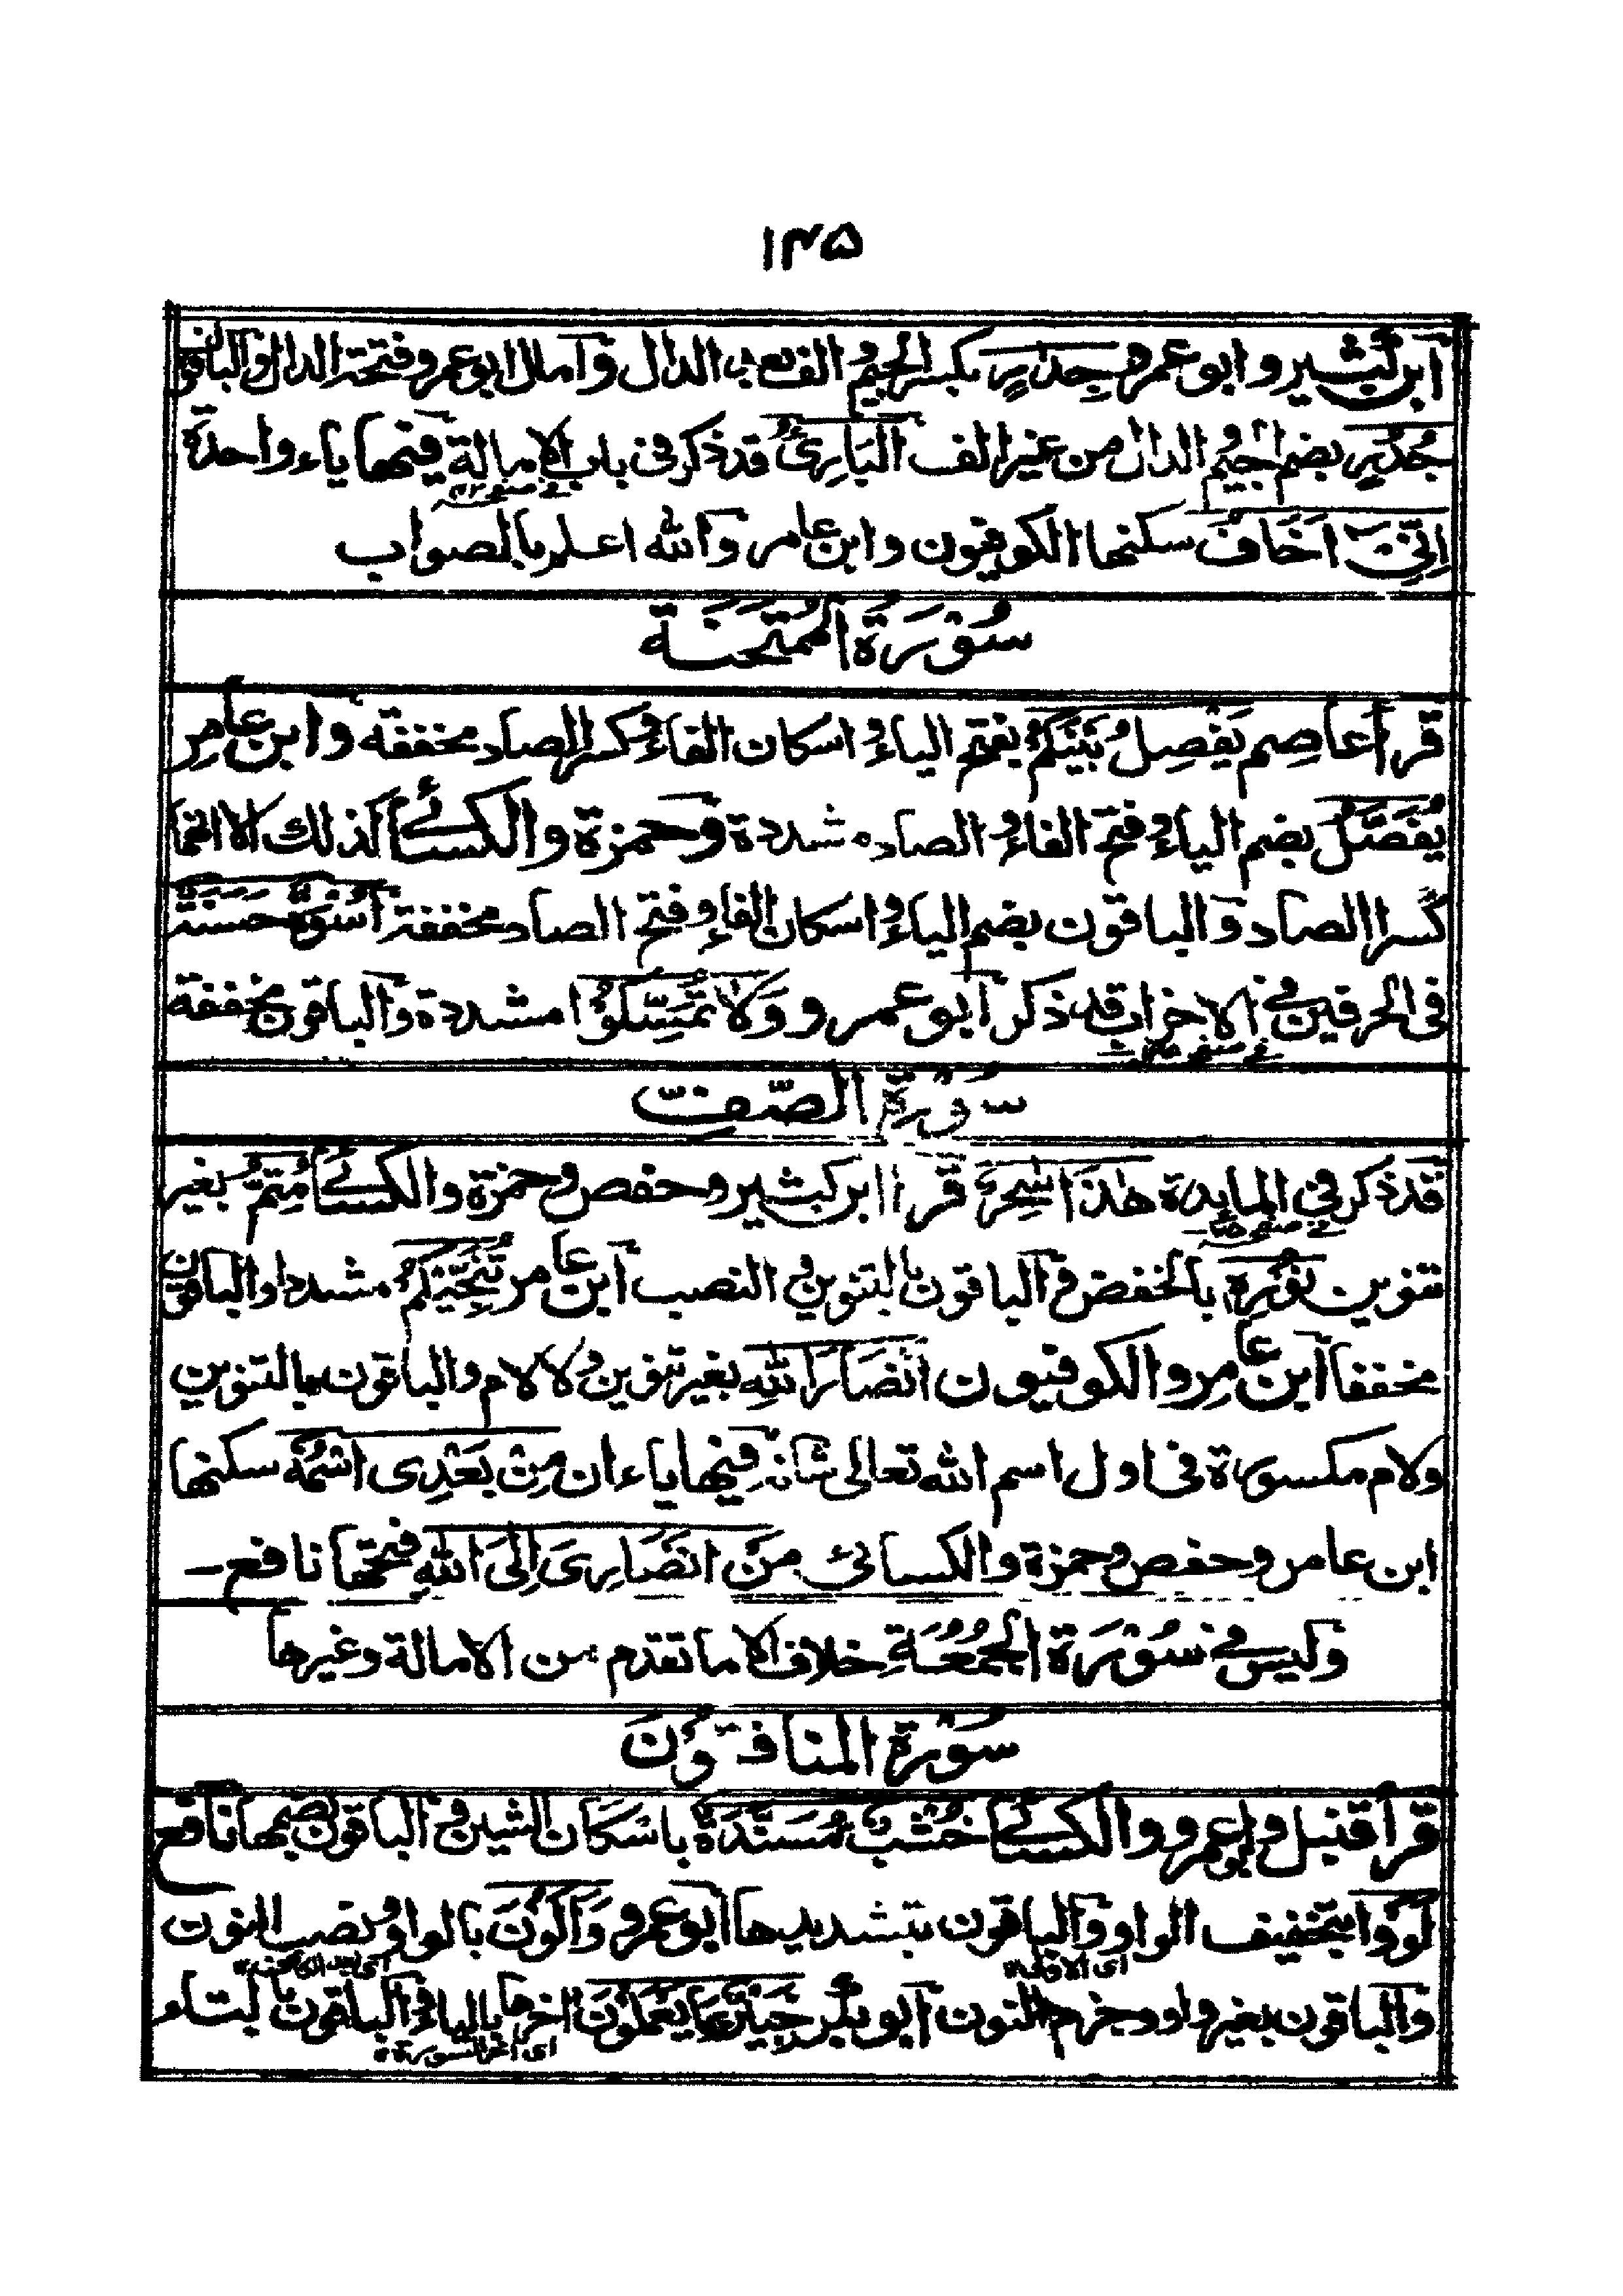 ١٣٥
ابن كثير و ابو عمرو جِدَارٍ بكسر الجيم و الف بعد الدال و امال ابو عمرو فتحة الدال و الباقون
جُدُرٍ بضم الجيم و الدال من غير الف البَارِئُ قد ذكر فى باب الامالة فيها ياء واحدة
اِنِّىٓ اَخَافُ سكنها الكوفيون و ابن عامر و الله اعلم بالصواب
سُوْرَةُ المُمْتَحَنَة
قرأ عاصم يَفْصِلُ بَيْنَكُمْ بفتح الياء و اسكان الفاء و كسر الصاد مخففة و ابن عامر
يُفَصَّلُ بضم الياء و فتح الفاء و الصاد مشددة و حمزة و الكسائى كذلك الا انهما
كسرا الصاد و الباقون بضم الياء و اسكان الفاء و فتح الصاد مخففة اُسْوَةٌ حَسَنَةٌ
فى الحرفين فى الاحزاب قد ذكر ابو عمرو وَلَا تُمَسِّكُوْا مشددة و الباقون مخففة
سُوْرَةُ الصَّفّ
قد ذكر فى المايدة هٰذَا سٰحِرٌ قرأ ابن كثير و حفص و حمزة و الكسائى مُتِمُّ بغير
تنوين نُوْرِهٖ بالخفض و الباقون بالتنوين و النصب ابن عامر تُنَجِّيْكُمْ مشددا و الباقون
مخففا ابن عامر و الكوفيون اَنْصَارَ اللهِ بغير تنوين و لا لام و الباقون بالتنوين
و لام مكسورة فى اول اسم الله تعالى شانه فيها ياءان مِنْ بَعْدِى اسْمُهٗ سكنها
ابن عامر و حفص و حمزة و الكسائى مَنْ اَنْصَارِىَ اِلَى اللهِ فتحها نافع ـ
و ليس فى سُوْرَةِ الجُمُعَةِ خلاف الا ما تقدم من الامالة و غيرها
سُوْرَةُ المنافقُوْنَ
قرأ قنبل و ابو عمرو و الكسائى خُشْبٌ مُّسَنَّدَةٌ باسكان الشين و الباقون بضمها نافع
لَوَوْا بتخفيف الواو و الباقون بتشديدها ابو عمرو وَاَكُوْنَ بالواو و نصب النون
و الباقون بغير واو و جزم النون ابو بكر خَبِيْرٌ بِمَا يَعْمَلُوْنَ اخرها بالياء و الباقون بالتاء
اى اخر السورة